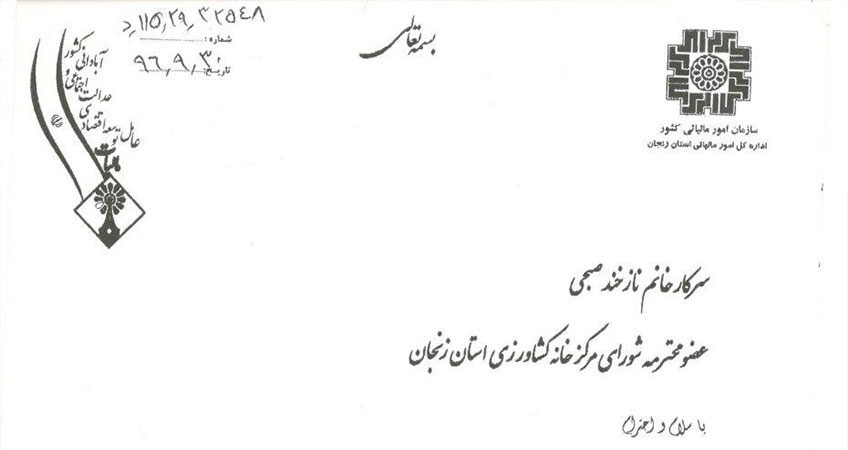 بسمه تعالی
شماره: ۳۲۵۴۸٫۲۹٫۱۱۵٫د
تاریخ: ۹۶٫۹٫۳۰
سازمان امور مالیاتی کشور
اداره کل امور مالیاتی استان زنجان
مالیات
عامل توسعه اقتصادی
عدالت اجتماعی و
آبادانی کشور
سرکار خانم نازخند صبحی
عضو محترمه شورای مرکز خانه کشاورزی استان زنجان
با سلام و احترام